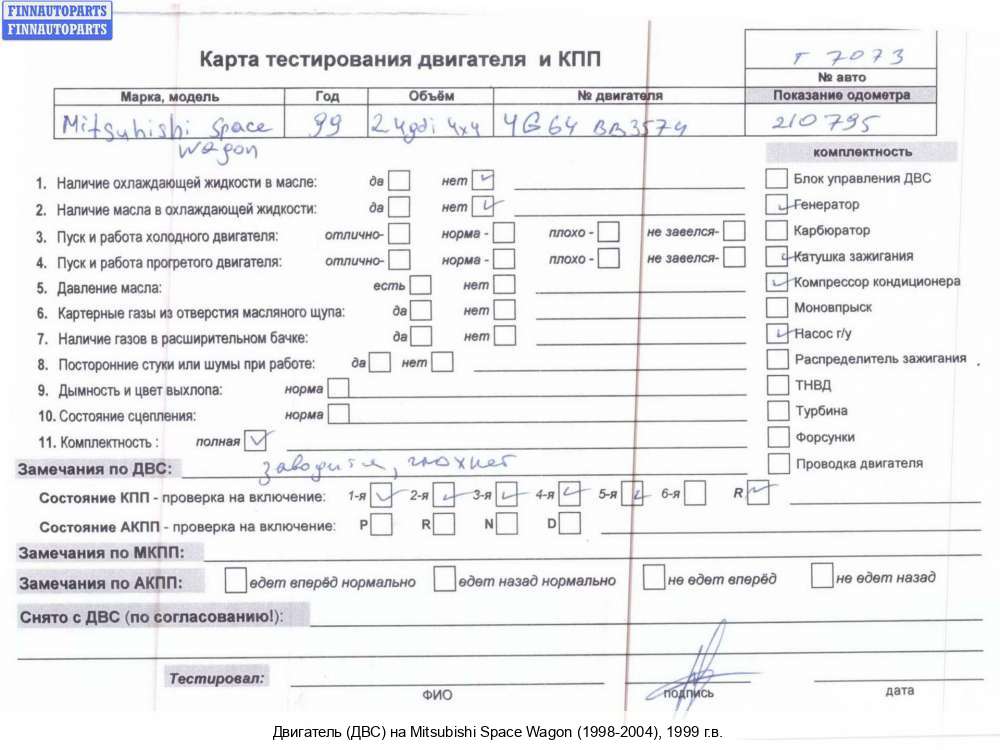 FINNAUTOPARTS
FINNAUTOPARTS
Карта тестирования двигателя и КПП
т 7073
№ авто
Марка, модель Год Объём № двигателя Показание одометра
Mitsubishi Space 99 2 4gdi 4x4 4G64 BB3574 210795
wagon
комплектность
1. Наличие охлаждающей жидкости в масле: да нет
Блок управления ДВС
2. Наличие масла в охлаждающей жидкости: да нет
Генератор
3. Пуск и работа холодного двигателя: отлично- норма - плохо - не завелся-
Карбюратор
4. Пуск и работа прогретого двигателя: отлично- норма - плохо - не завелся-
Катушка зажигания
5. Давление масла: есть нет
Компрессор кондиционера
6. Картерные газы из отверстия масляного щупа: да нет
Моновпрыск
7. Наличие газов в расширительном бачке: да нет
Насос г/у
8. Посторонние стуки или шумы при работе: да нет
Распределитель зажигания
9. Дымность и цвет выхлопа: норма
ТНВД
10. Состояние сцепления: норма
Турбина
11. Комплектность : полная
Форсунки
Замечания по ДВС: заводится, глохнет
Проводка двигателя
Состояние КПП - проверка на включение: 1-я 2-я 3-я 4-я 5-я 6-я R
Состояние АКПП - проверка на включение: P R N D
Замечания по МКПП:
Замечания по АКПП: едет вперёд нормально едет назад нормально не едет вперёд не едет назад
Снято с ДВС (по согласованию!):
Тестировал:
ФИО подпись дата
Двигатель (ДВС) на Mitsubishi Space Wagon (1998-2004), 1999 г.в.